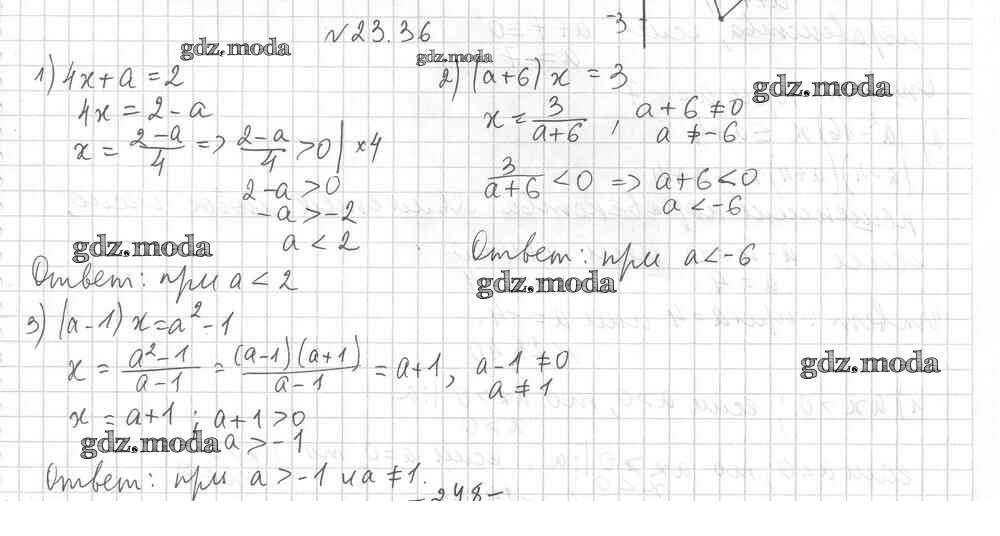 №23.36
-3
gdz.moda
gdz.moda
gdz.moda
1) 4x+a=2
4x=2-a
x = (2-a)/4 => (2-a)/4 > 0 | ×4
2-a>0
-a>-2
a<2
gdz.moda
Ответ: при a<2
2) (a+6) x = 3
x = 3/(a+6), a+6≠0
a≠-6
3/(a+6) < 0 => a+6<0
a<-6
Ответ: при a<-6
gdz.moda
3) (a-1) x=a²-1
x = (a²-1)/(a-1) = ((a-1)(a+1))/(a-1) = a+1, a-1≠0
a≠1
gdz.moda
x = a+1; a+1>0
gdz.moda a>-1
Ответ: при a>-1 и a≠1.